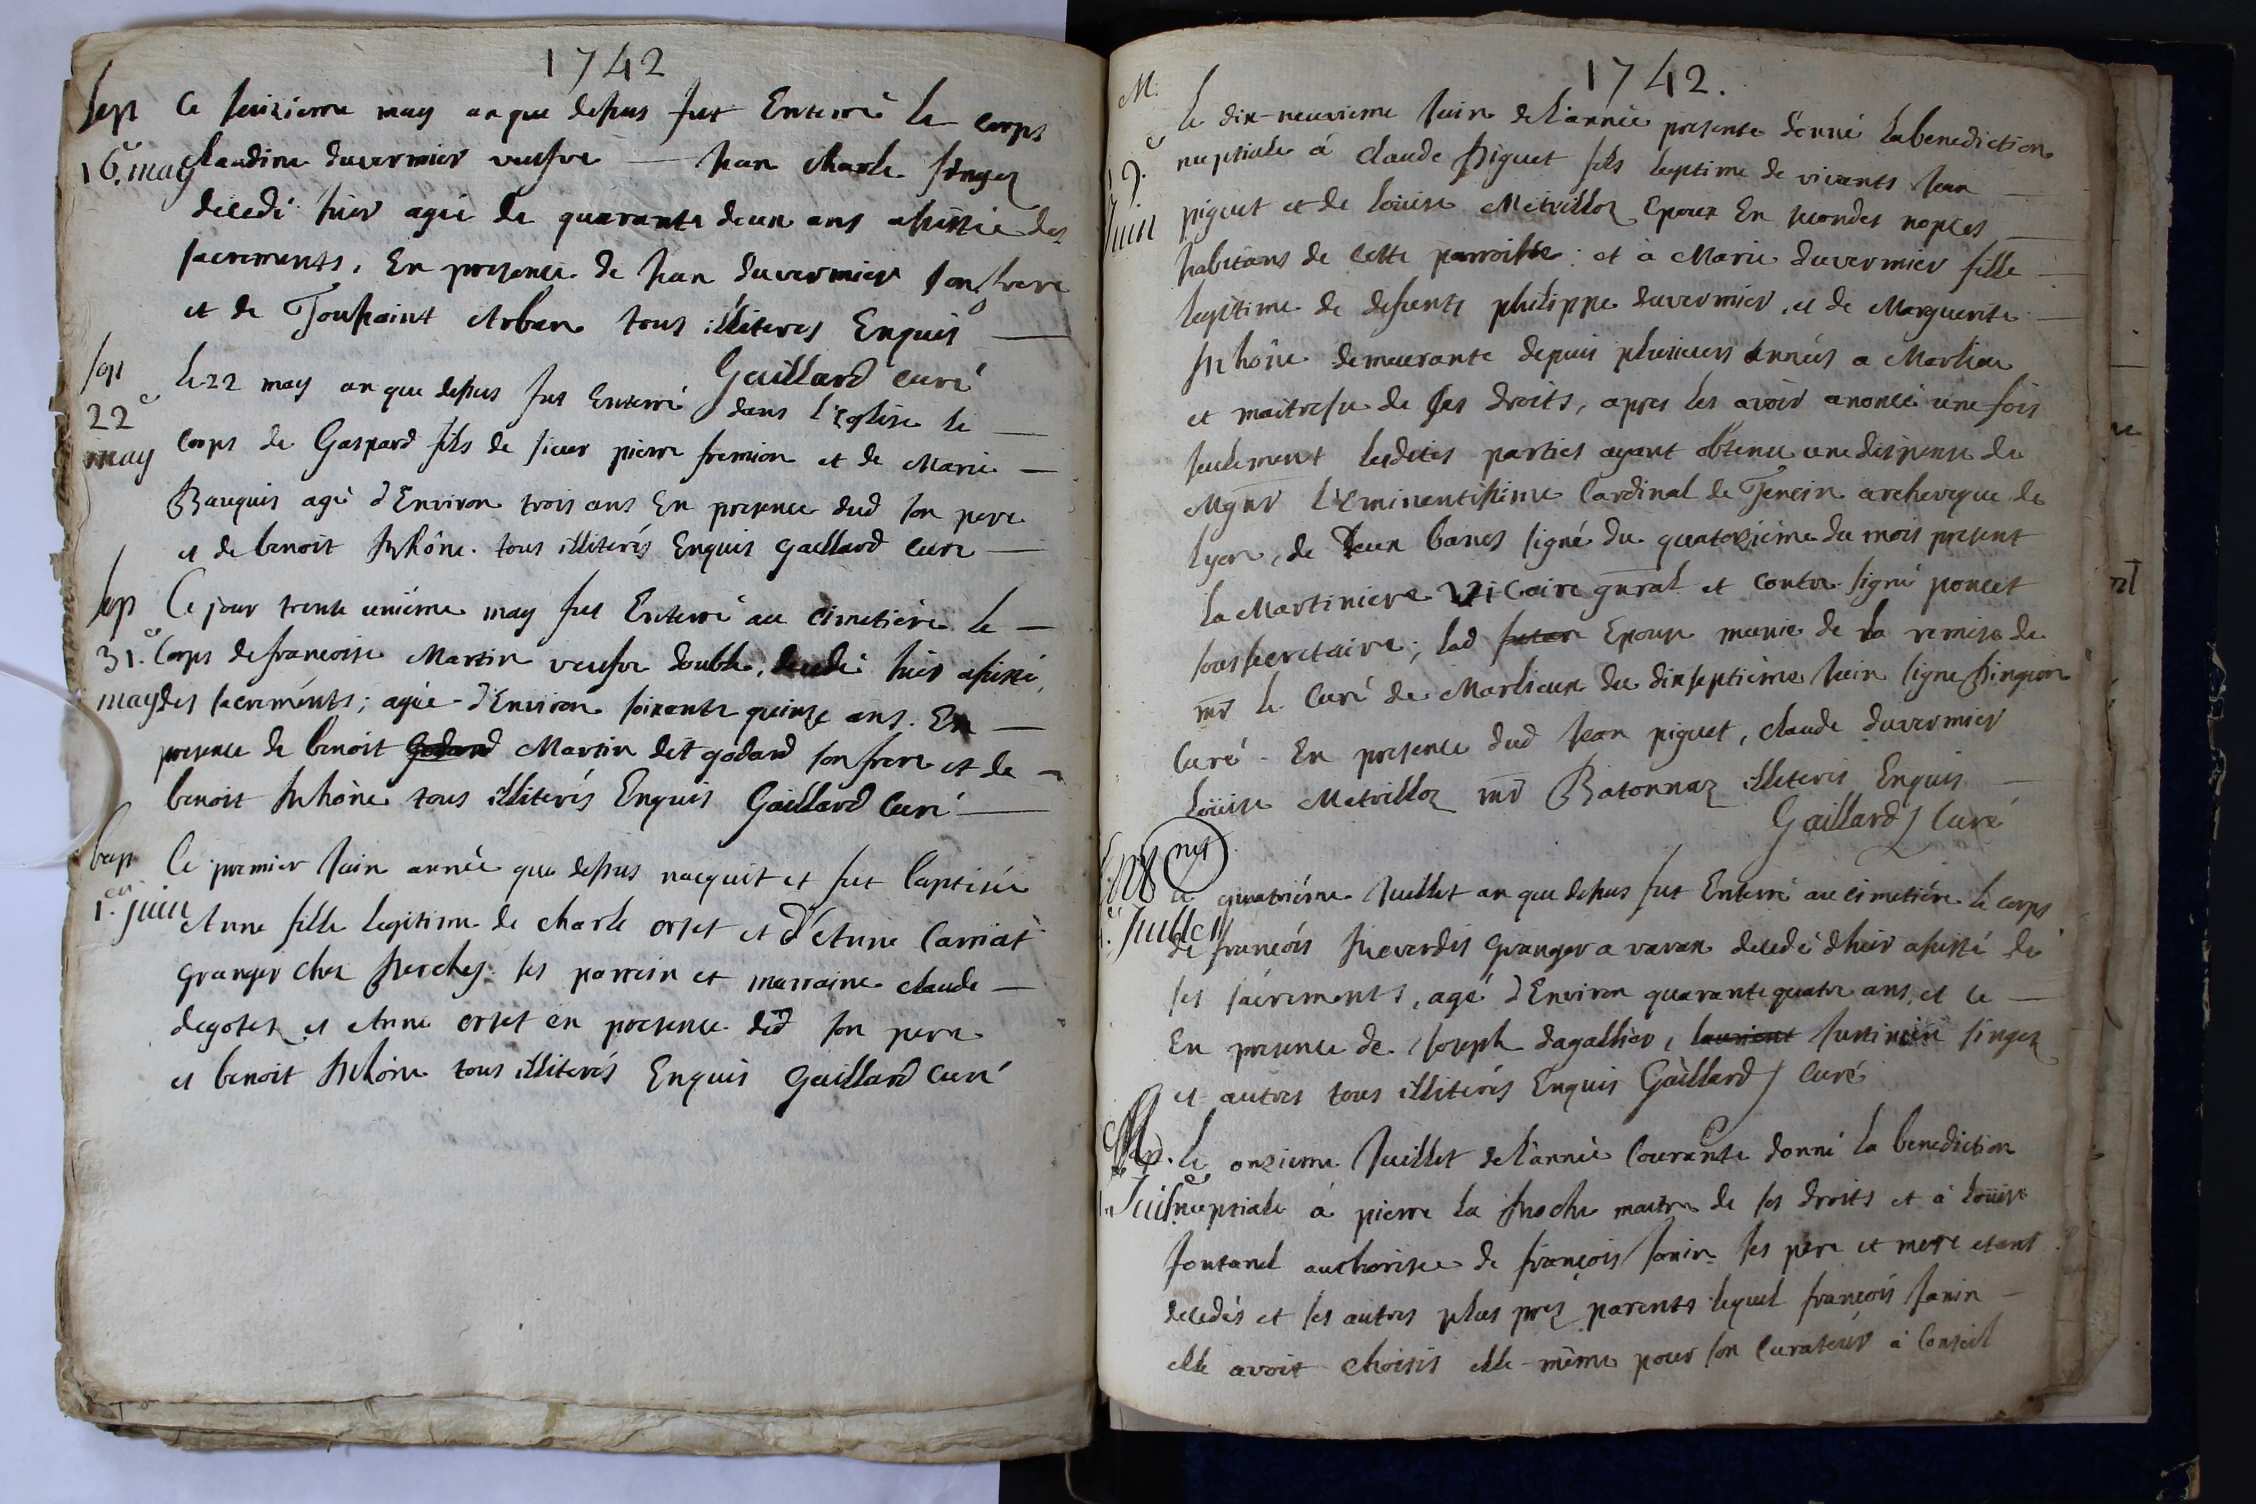 1742
Sep Ce seizieme may an que dessus fut Enterré le corps
16.e may claudine duvernier veusve — Jean charle Singez
décedé hier agée de quarante deux ans assistée des
sacrements, En presence de Jean duvernier son frere
et de Toussaint Arban tous illiteres Enquis —
Gaillard curé
Sep Le 22 may an que dessus fut Enterré dans l'Eglise le —
22e corps de Gaspard fils de sieur pierre fremion et de Marie —
may Bauquis agé d'Environ trois ans En presence dud son pere
et de benoit Rhône. tous illiterés Enquis Gaillard curé —
Sep Ce jour trente uniéme may fut Enterré au cimetiére le —
31.e Corps de francoise Martin veufve double, decedé hier assisté,
may des sacreménts; agée d'Environ soixante quinze ans. En —
presence de benoit Godard Martin dit godard son frere et de —
benoit Rhône tous illiterés Enquis Gaillard Curé —
bap Ce premier Juin année que dessus naquit et fut baptisée
1.er juin Anne fille legitime de charle orset et d'Anne Carriat
granger chez perches ses parrein et marraine claude —
degotes et Anne orset en presence dud son pere
et benoit Rhône tous illiterés Enquis Gaillard Curé
1742.
M. Le dix-neuvieme Juin de l'année presente donné la benediction
9.e nuptiale á claude piguet fils legitime de vivants Jean —
Juin piguet et de Loüise Metrilloz Epoux En secondes nopces —
habitans de cette parroisse; et à Marie duvernier fille —
legitime de defunts philippe duvernier, et de Marguerite —
Rhône demeurante depuis plusieurs années a Marlieu
et maitresse de ses droits, apres les avoir anoncé une fois
seulement lesdites parties ayant obtenu une dispense de
Mgnr L'Eminentissime Cardinal de Tencin archeveque de
Lyon, de deux bancs signé du quatorziéme du mois present
La Martiniere vicaire gnral et contre signé poncet
sous secretaire; lad futur Epouse munie de la remise de
mr le Curé de Marlieux du dixseptiéme Juin signe pingeon
Curé. En presence dud Jean piguet, claude duvernier
Loüise Metrilloz mr Batonnaz illiterés Enquis —
Gaillard Curé
Le quatriéme Juillet an que dessus fut Enterré au cimetiére le corps
Juillet de francois Reverdis granger a varan decedé d'hier assisté de
ses sacrements, agé d'Environ quarante quatre ans, et ce —
En presence de Joseph dagallier, laurient Justinien singez
et autres tous illiterés Enquis Gaillard Curé
Le onzieme Juillet de l'année Courante donné la benediction
Juil nuptiale á pierre la Roche maitre de ses droits et á Loüise
fontanel authorisée de françois Janin ses pere et mere etant
decedés et ses autres plus prez parents lequel françois Janin —
elle avoit choisis elle-même pour son Curateur á Conseil